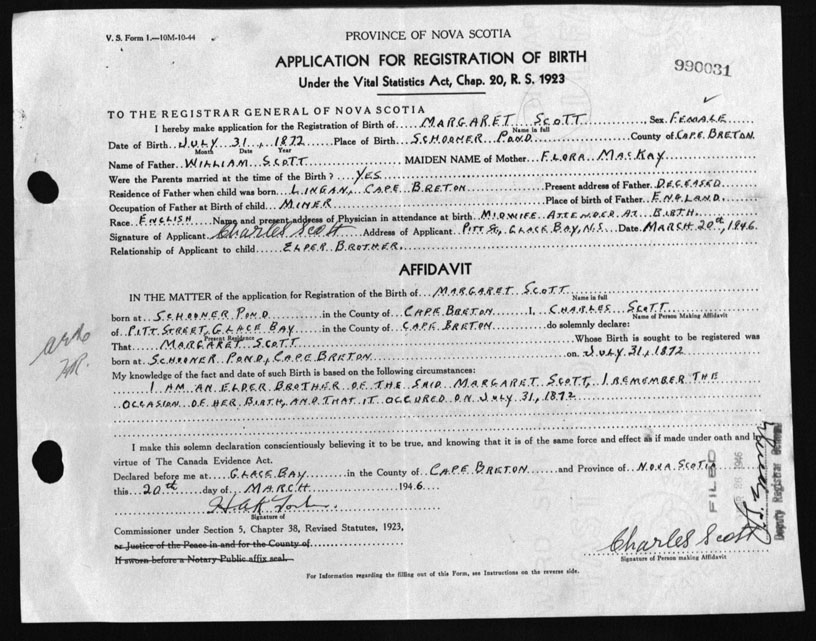 V. S. Form 1.—10M-10-44
PROVINCE OF NOVA SCOTIA
APPLICATION FOR REGISTRATION OF BIRTH
Under the Vital Statistics Act, Chap. 20, R. S. 1923
990031
TO THE REGISTRAR GENERAL OF NOVA SCOTIA
I hereby make application for the Registration of Birth of MARGARET SCOTT Sex FEMALE
Name in full
Date of Birth JULY 31, 1872 Place of Birth SCHOONER POND County of CAPE BRETON
Month Date Year
Name of Father WILLIAM SCOTT MAIDEN NAME of Mother FLORA MACKAY
Were the Parents married at the time of the Birth? YES
Residence of Father when child was born LINGAN, CAPE BRETON Present address of Father DECEASED
Occupation of Father at Birth of child MINER Place of birth of Father ENGLAND.
Race ENGLISH Name and present address of Physician in attendance at birth MIDWIFE ATTENDED AT BIRTH.
Signature of Applicant Charles Scott Address of Applicant PITT ST, GLACE BAY, N.S. Date MARCH 20th, 1946.
Relationship of Applicant to child ELDER BROTHER.
AFFIDAVIT
IN THE MATTER of the application for Registration of the Birth of MARGARET SCOTT
Name in full
born at SCHOONER POND in the County of CAPE BRETON I, CHARLES SCOTT
Name of Person Making Affidavit
of PITT STREET, GLACE BAY in the County of CAPE BRETON do solemnly declare:
Present Residence
That MARGARET SCOTT Whose Birth is sought to be registered was
born at SCHOONER POND, CAPE BRETON on JULY 31, 1872
My knowledge of the fact and date of such Birth is based on the following circumstances:
I AM AN ELDER BROTHER OF THE SAID MARGARET SCOTT, I REMEMBER THE
OCCASION OF HER BIRTH, AND THAT IT OCCURED ON JULY 31, 1872
I make this solemn declaration conscientiously believing it to be true, and knowing that it is of the same force and effect as if made under oath and by
virtue of The Canada Evidence Act.
Declared before me at GLACE BAY in the County of CAPE BRETON and Province of NOVA SCOTIA
this 20th day of MARCH 1946.
Signature of
Commissioner under Section 5, Chapter 38, Revised Statutes, 1923,
or Justice of the Peace in and for the County of
If sworn before a Notary Public affix seal.
Charles Scott
Signature of Person making Affidavit
FILED
1946
Deputy Registrar
For Information regarding the filling out of this Form, see Instructions on the reverse side.